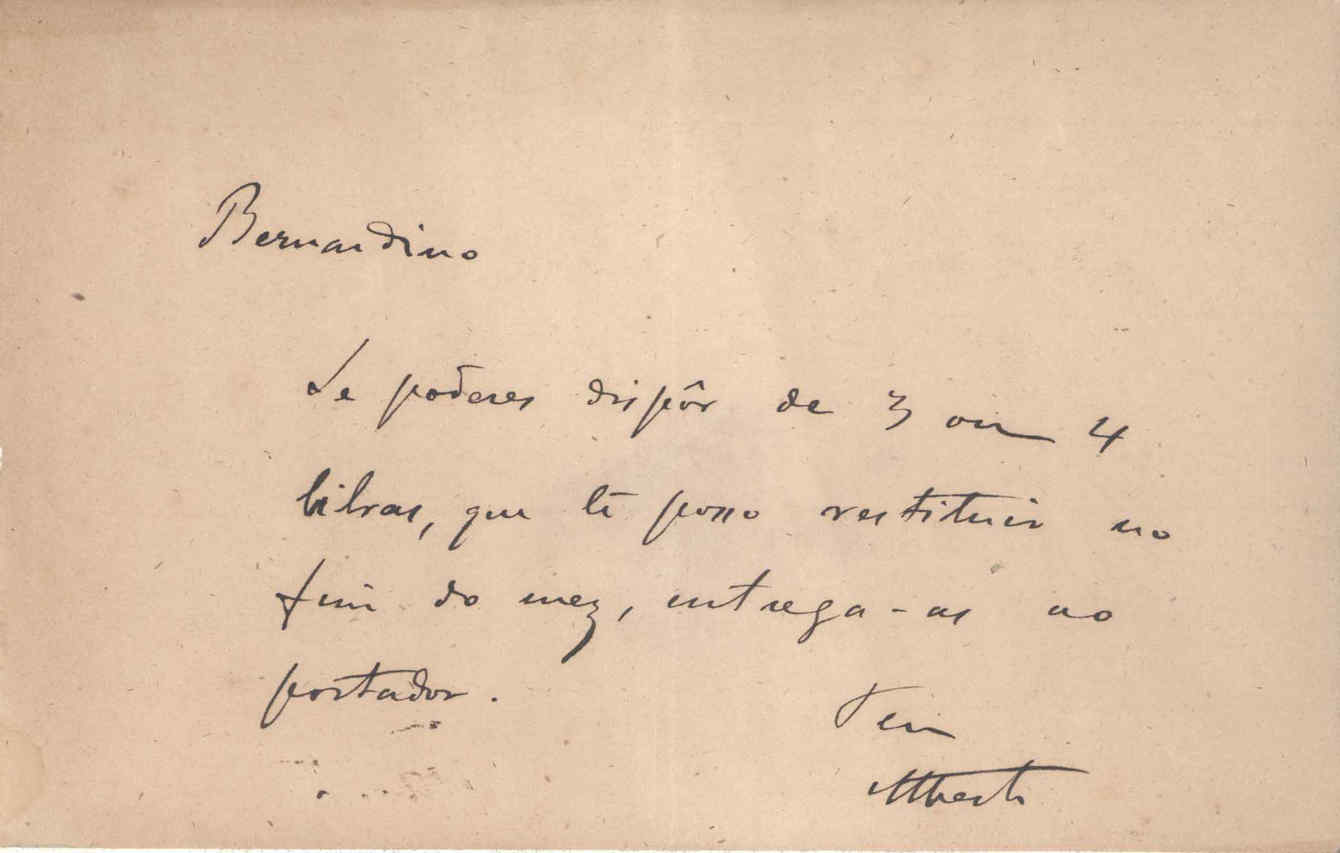 Bernardino
Se poderes dispôr de 3 ou 4
libras, que te posso restituir no
fim do mez, entrega-as ao
portador.
Teu
Alberto